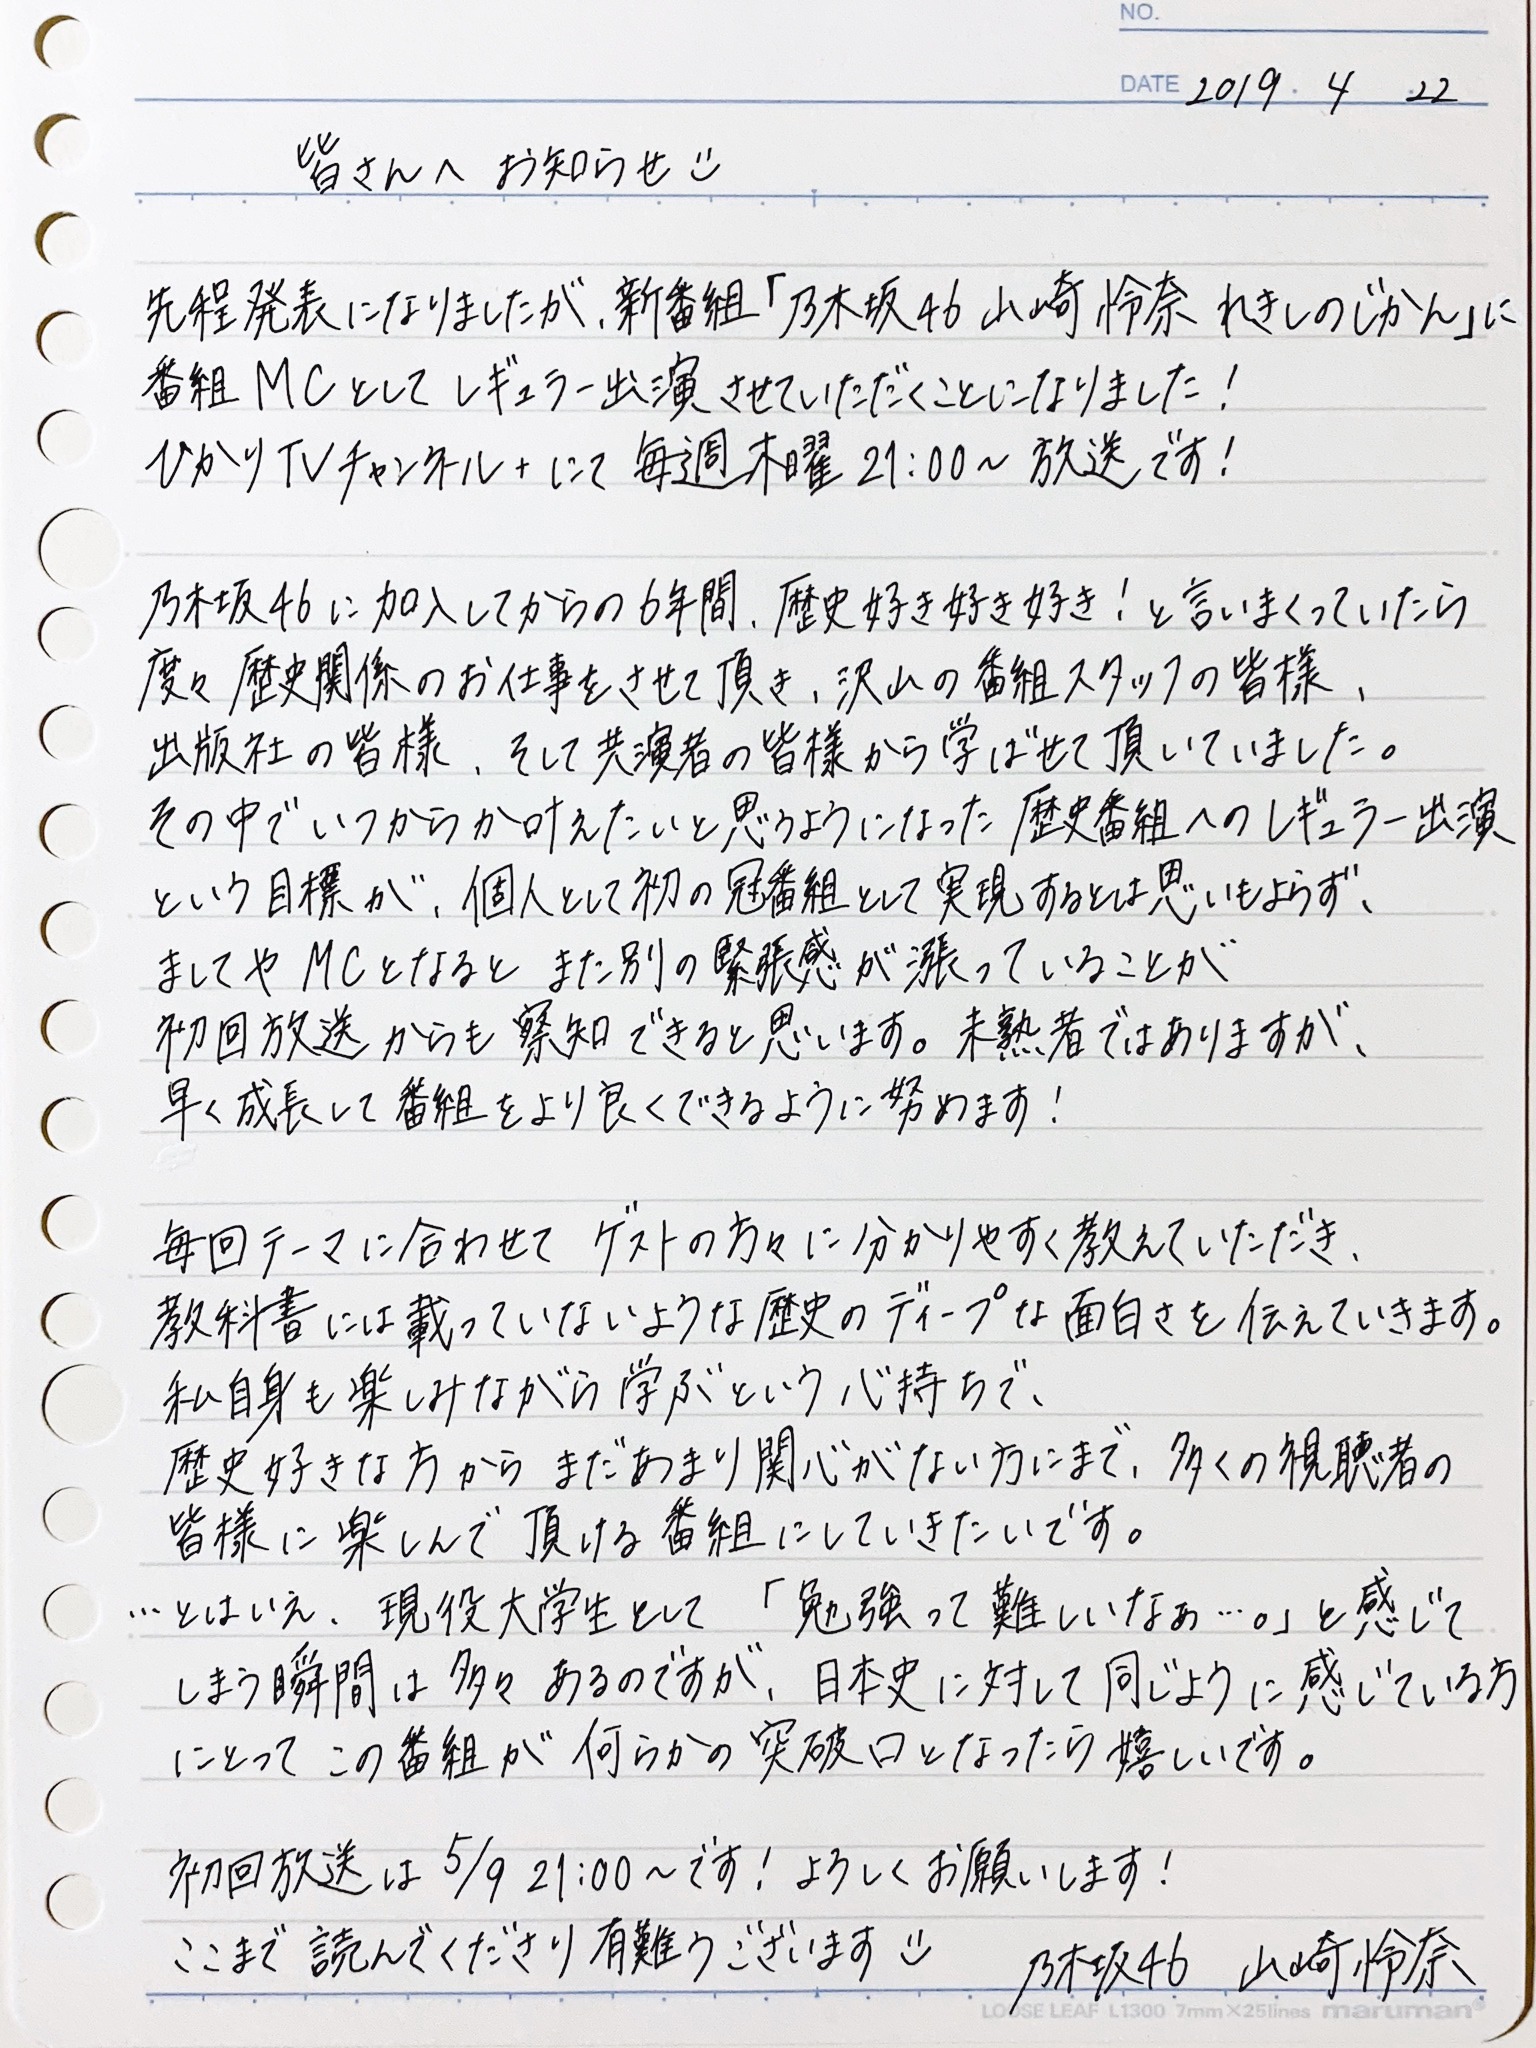 NO.
DATE 2019. 4 22
皆さんへ お知らせ
先程発表になりましたが、新番組「乃木坂46 山崎怜奈 れきしのじかん」に
番組MCとしてレギュラー出演させていただくことになりました!
ひかりTVチャンネル+にて 毎週木曜21:00~ 放送です!
乃木坂46に加入してからの6年間、歴史好き好き好き!と言いまくっていたら
度々歴史関係のお仕事をさせて頂き、沢山の番組スタッフの皆様、
出版社の皆様、そして共演者の皆様から学ばせて頂いていました。
その中でいつからか叶えたいと思うようになった歴史番組へのレギュラー出演
という目標が、個人として初の冠番組として実現するとは思いもよらず、
ましてやMCとなるとまた別の緊張感が漲っていることが
初回放送からも察知できると思います。未熟者ではありますが、
早く成長して番組をより良くできるように努めます!
毎回テーマに合わせて ゲストの方々に分かりやすく教えていただき、
教科書には載っていないような歴史のディープな面白さを伝えていきます。
私自身も楽しみながら学ぶという心持ちで、
歴史好きな方からまだあまり関心がない方にまで、多くの視聴者の
皆様に楽しんで頂ける番組にしていきたいです。
…とはいえ、現役大学生として「勉強って難しいなぁ…。」と感じて
しまう瞬間は多々あるのですが、日本史に対して同じように感じている方
にとってこの番組が何らかの突破口となったら嬉しいです。
初回放送は5/9 21:00~です!よろしくお願いします!
ここまで読んでくださり有難うございます
乃木坂46 山崎怜奈
LOOSE LEAF L1300 7mm×25lines maruman®